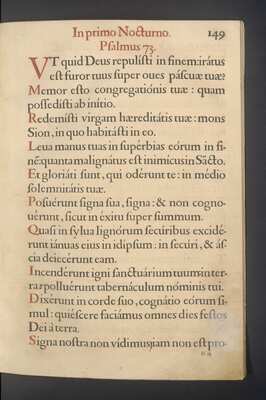 In primo Nocturno. 149
Psalmus 73.
VT quid Deus repulísti in finem: irátus
est furor tuus super oues páscuæ tuæ?
Memor esto congregatiónis tuæ : quam
possedísti ab inítio.
Redemísti virgam hæreditátis tuæ : mons
Sion, in quo habitásti in eo.
Leua manus tuas in supérbias eórum in fi-
né: quanta malignátus est inimícus in Sácto.
Et gloriáti sunt, qui odérunt te : in médio
solemnitátis tuæ.
Posuérunt signa sua, signa : & non cogno-
uérunt, sicut in éxitu super summum.
Quasi in sylua lignórum secúribus excidé-
runt iánuas eius in idípsum : in secúri, & ás-
cia deiecérunt eam.
Incendérunt igni sanctuárium tuum: in ter-
ra polluérunt tabernáculum nóminis tui.
Dixérunt in corde suo, cognátio eórum si-
mul : quiéscere faciámus omnes dies festos
Dei à terra.
Signa nostra non vídimus, iam non est pro-